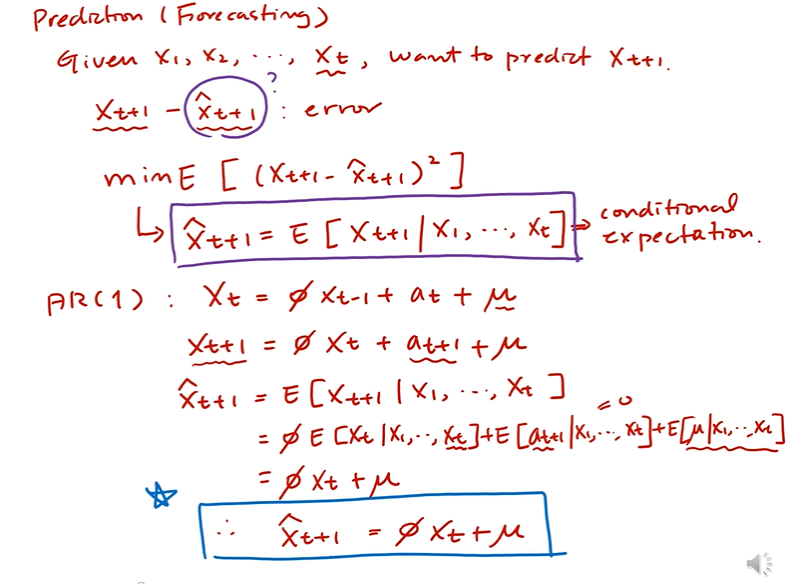 Prediction (Forecasting)
Given x₁, x₂, ···, Xt, want to predict Xt+1.
Xt+1 - x̂t+1 : error
?
min E [ (Xt+1 - x̂t+1)² ]
↳ x̂t+1 = E [ Xt+1 | X1, ···, Xt] ⇒ conditional expectation.
AR(1) : Xt = φ Xt-1 + at + μ
Xt+1 = φ Xt + at+1 + μ
x̂t+1 = E [Xt+1 | X1, ···, Xt ]
= φ E [Xt | X1, ··, Xt] + E [at+1 | X1, ··, Xt] + E[μ | X1, ··, Xt]
= 0
= φ Xt + μ
☆ ∴ x̂t+1 = φ Xt + μ